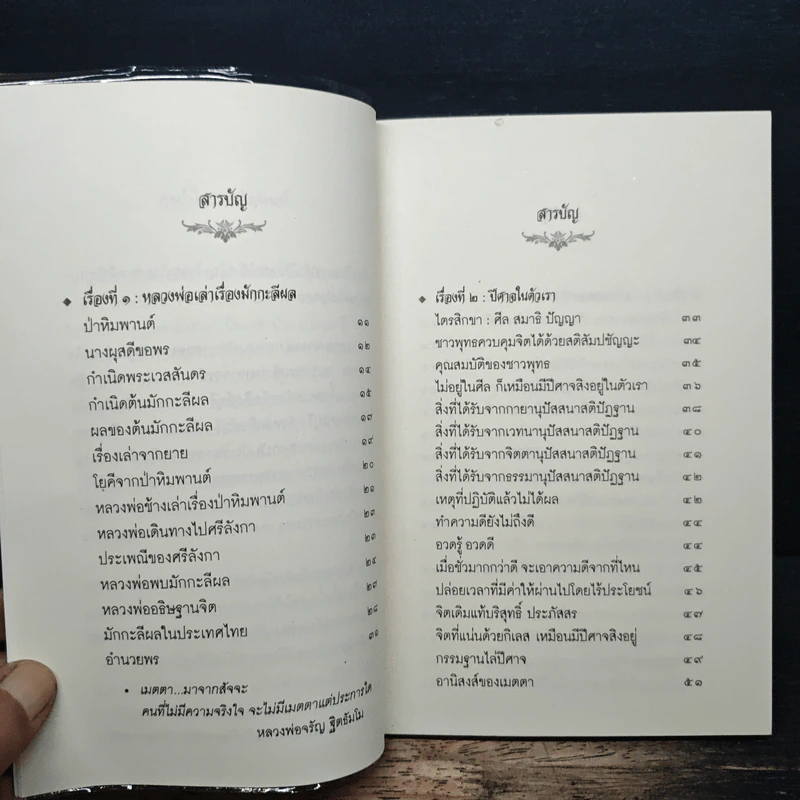 สารบัญ
◆ เรื่องที่ ๑ : หลวงพ่อเล่าเรื่องมักกะลีผล
ป่าหิมพานต์ ๑๑
นางผุสดีขอพร ๑๒
กำเนิดพระเวสสันดร ๑๔
กำเนิดต้นมักกะลีผล ๑๕
ผลของต้นมักกะลีผล ๑๗
เรื่องเล่าจากยาย ๑๙
โยคีจากป่าหิมพานต์ ๒๐
หลวงพ่อช้างเล่าเรื่องป่าหิมพานต์ ๒๑
หลวงพ่อเดินทางไปศรีลังกา ๒๓
ประเพณีของศรีลังกา ๒๓
หลวงพ่อพบมักกะลีผล ๒๔
หลวงพ่ออธิษฐานจิต ๒๗
มักกะลีผลในประเทศไทย ๒๘
อำนวยพร ๓๑
• เมตตา...มาจากสัจจะ
คนที่ไม่มีความจริงใจ จะไม่มีเมตตาแต่ประการใด
หลวงพ่อจรัญ ฐิตธัมโม
สารบัญ
◆ เรื่องที่ ๒ : ปีศาจในตัวเรา
ไตรสิกขา : ศีล สมาธิ ปัญญา ๓๓
ชาวพุทธควบคุมจิตได้ด้วยสติสัมปชัญญะ ๓๔
คุณสมบัติของชาวพุทธ ๓๕
ไม่อยู่ในศีล ก็เหมือนมีปีศาจสิงอยู่ในตัวเรา ๓๖
สิ่งที่ได้รับจากกายานุปัสสนาสติปัฏฐาน ๓๘
สิ่งที่ได้รับจากเวทนานุปัสสนาสติปัฏฐาน ๔๐
สิ่งที่ได้รับจากจิตตานุปัสสนาสติปัฏฐาน ๔๑
สิ่งที่ได้รับจากธรรมานุปัสสนาสติปัฏฐาน ๔๒
เหตุที่ปฏิบัติแล้วไม่ได้ผล ๔๒
ทำความดียังไม่ถึงดี ๔๔
อวดรู้ อวดดี ๔๔
เมื่อชั่วมากกว่าดี จะเอาความดีจากที่ไหน ๔๕
ปล่อยเวลาที่มีค่าให้ผ่านไปโดยไร้ประโยชน์ ๔๖
จิตเดิมแท้บริสุทธิ์ ประภัสสร ๔๗
จิตที่แน่นด้วยกิเลส เหมือนมีปีศาจสิงอยู่ ๔๘
กรรมฐานไล่ปีศาจ ๔๙
อานิสงส์ของเมตตา ๕๑